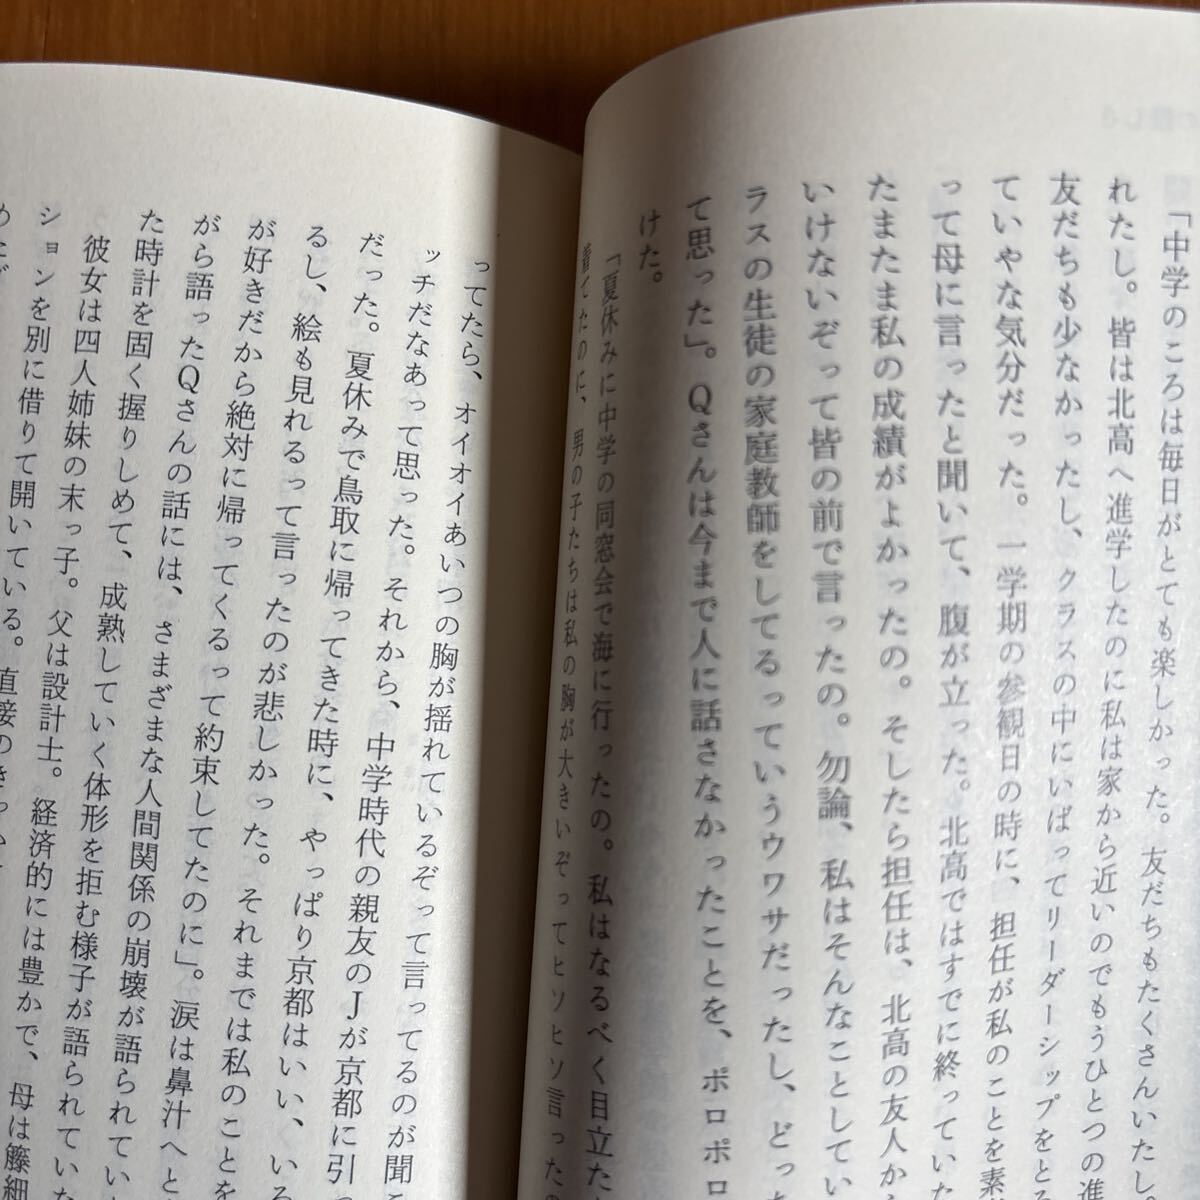 「中学のころは毎日がとても楽しかった。友だちもたくさんいたし
れたし。皆は北高へ進学したのに私は家から近いのでもうひとつの進
友だちも少なかったし、クラスの中にいばってリーダーシップをと
ていやな気分だった。一学期の参観日の時に、担任が私のことを素
って母に言ったと聞いて、腹が立った。北高ではすでに終っていた
たまたま私の成績がよかったの。そしたら担任は、北高の友人か
いけないぞって皆の前で言ったの。勿論、私はそんなことしてい
ラスの生徒の家庭教師をしてるっていうウワサだったし、どっ
て思った」。Qさんは今まで人に話さなかったことを、ポロポロ
けた。
「夏休みに中学の同窓会で海に行ったの。私はなるべく目立た
着てたのに、男の子たちは私の胸が大きいぞってヒソヒソ言ったの
ってたら、オイオイあいつの胸が揺れているぞって言ってるのが聞こ
ッチだなあって思った。それから、中学時代の親友のJが京都に引っ
だった。夏休みで鳥取に帰ってきた時に、やっぱり京都はいい、いろ
るし、絵も見れるって言ったのが悲しかった。それまでは私のことを
が好きだから絶対に帰ってくるって約束してたのに」。涙は鼻汁へと
がら語ったQさんの話には、さまざまな人間関係の崩壊が語られてい
た時計を固く握りしめて、成熟していく体形を拒む様子が語られていた
彼女は四人姉妹の末っ子。父は設計士。経済的には豊かで、母は籐細
ションを別に借りて開いている。直接の